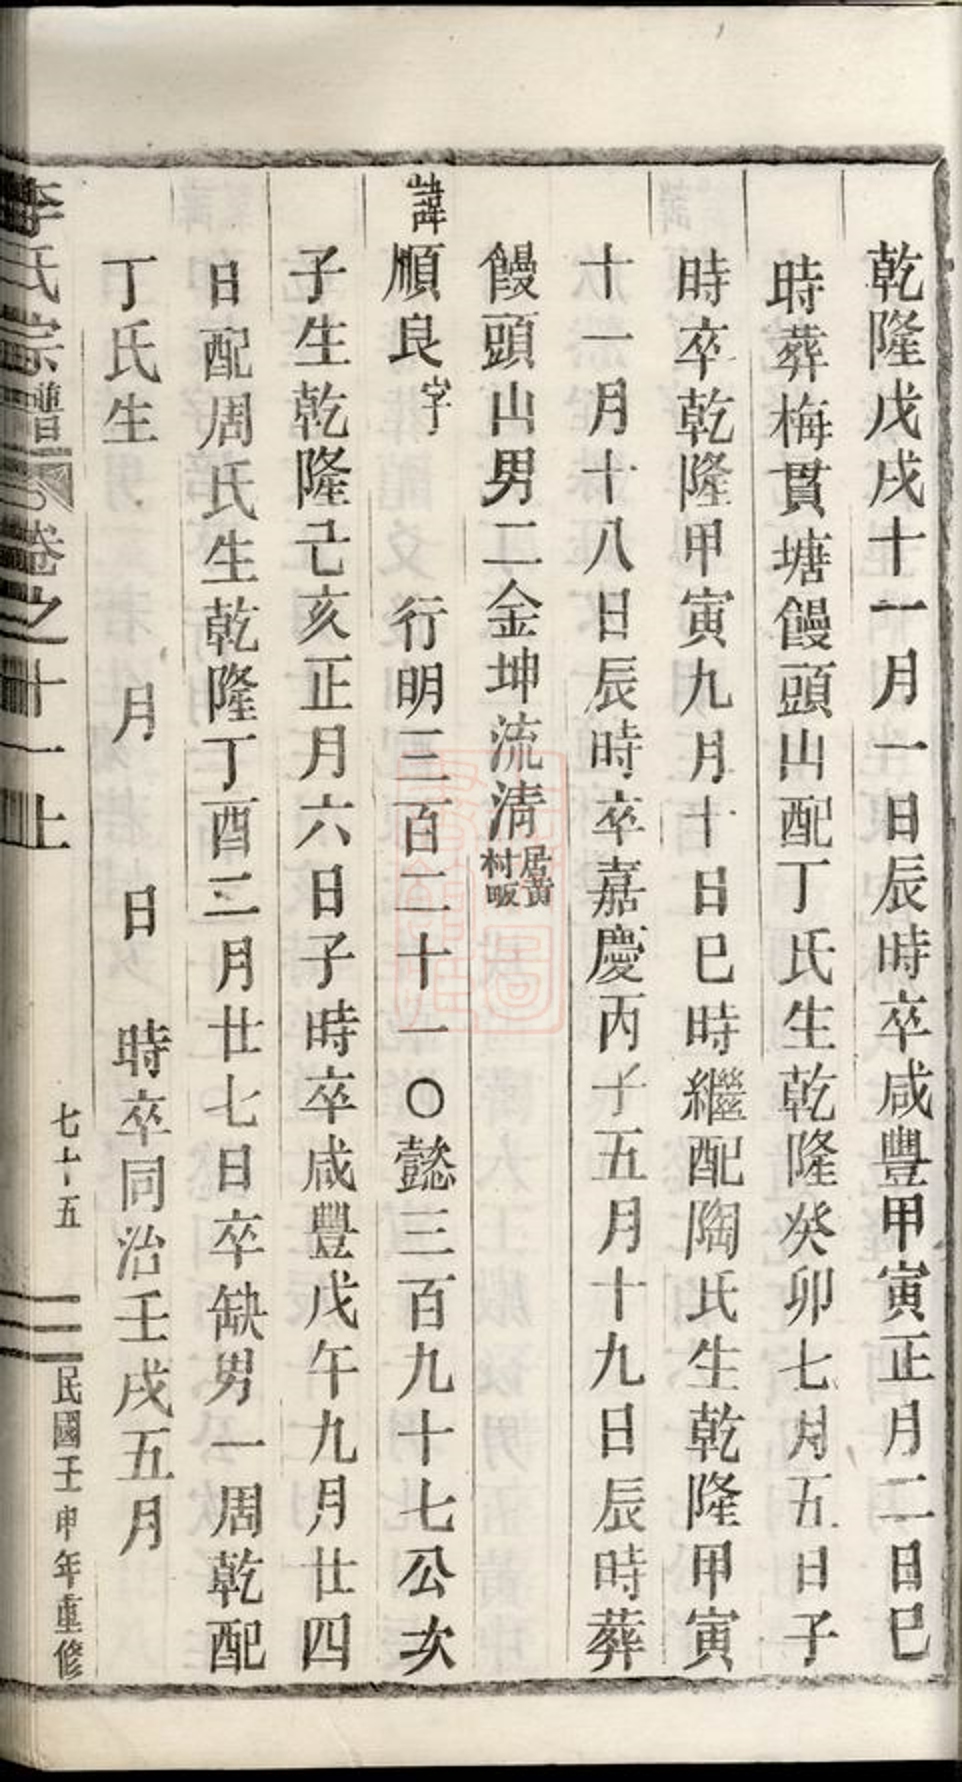 乾隆戊戌十一月一日辰時卒咸豐甲寅正月二日巳
時葬梅貫塘饅頭山配丁氏生乾隆癸卯七月五日子
時卒乾隆甲寅九月十日巳時繼配陶氏生乾隆甲寅
十一月十八日辰時卒嘉慶丙子五月十九日辰時葬
饅頭山男二金坤流清居黃村畈
諱順良字 行明三百二十一〇懿三百九十七公次
子生乾隆己亥正月六日子時卒咸豐戊午九月廿四
日配周氏生乾隆丁酉二月廿七日卒缺男一周乾配
丁氏生 月 日 時卒同治壬戌五月
李氏宗譜 卷之十一上 七十五 民國壬申年重修